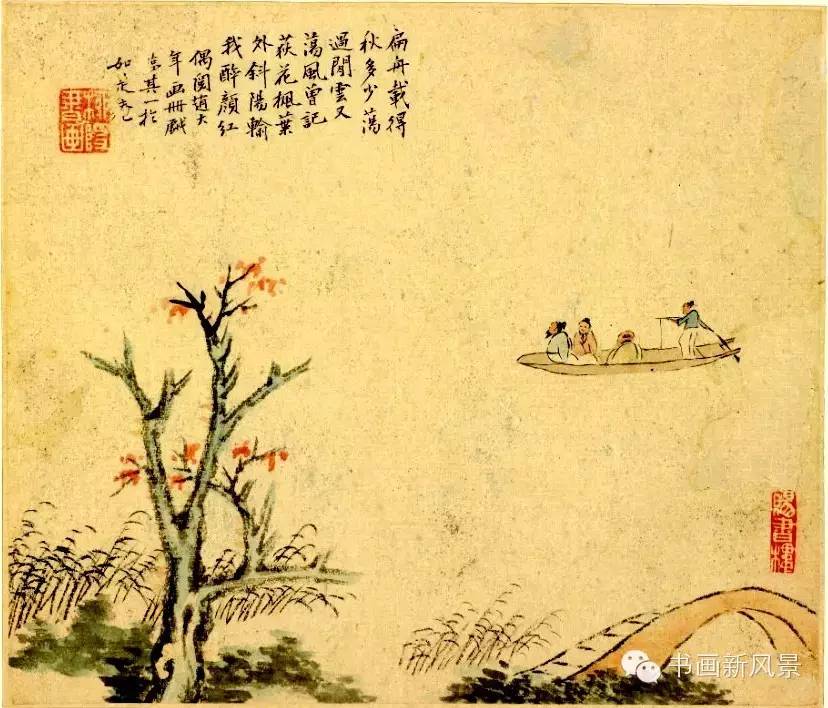 扁舟載得
秋多少蕩
過閒雲又
蕩風曾記
荻花楓葉
外斜陽輸
我醉顏紅
偶閱趙大
年畫冊戲
其一於
如是
柳隱書畫
賜書樓
书画新风景